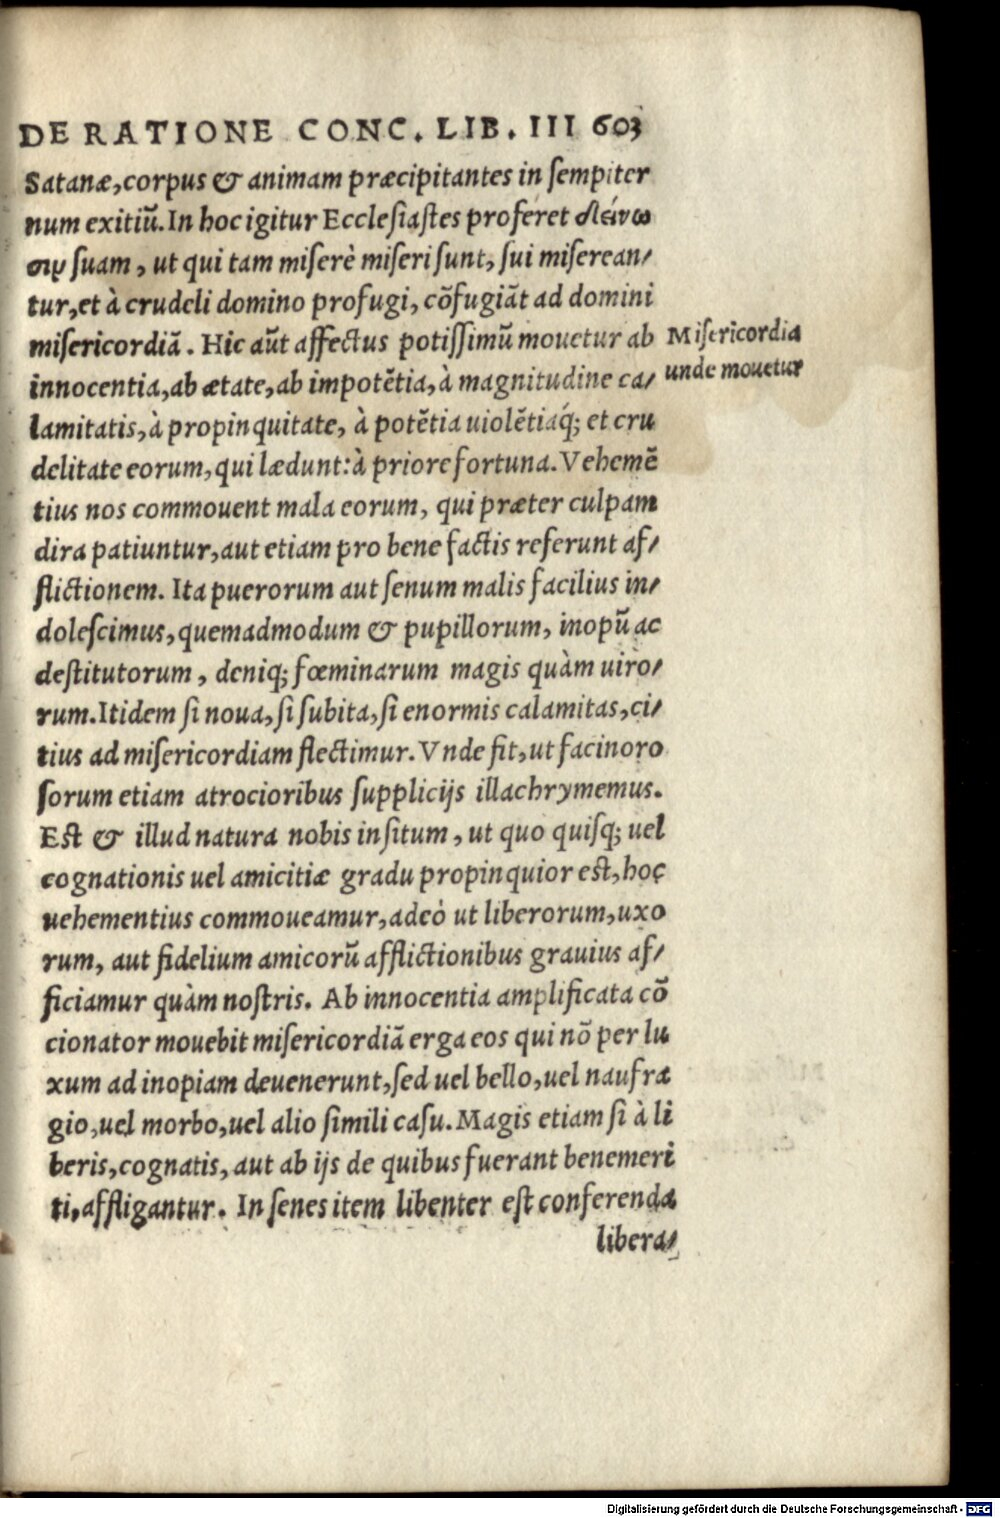 DE RATIONE CONC. LIB. III 603
Satanæ, corpus & animam præcipitantes in ſempiter
num exitiũ. In hoc igitur Eccleſiaſtes proferet δείνω
σιμ ſuam, ut qui tam miſerè miſeri ſunt, ſui miſerean/
tur, et à crudeli domino profugi, cõfugiãt ad domini
miſericordiã. Hic aũt affectus potiſſimũ mouetur ab
Miſericordia
unde mouetur
innocentia, ab ætate, ab impotẽtia, à magnitudine ca/
lamitatis, à propinquitate, à potẽtia uiolẽtiaq́; et cru
delitate eorum, qui lædunt: à priore fortuna. Vehemẽ
tius nos commouent mala eorum, qui præter culpam
dira patiuntur, aut etiam pro bene factis referunt af/
flictionem. Ita puerorum aut ſenum malis facilius in/
doleſcimus, quemadmodum & pupillorum, inopũ ac
deſtitutorum, deniq; fœminarum magis quàm uiro/
rum. Itidem ſi noua, ſi ſubita, ſi enormis calamitas, ci/
tius ad miſericordiam flectimur. Vnde fit, ut facinoro
ſorum etiam atrocioribus ſupplicijs illachrymemus.
Eſt & illud natura nobis inſitum, ut quo quiſq; uel
cognationis uel amicitiæ gradu propinquior eſt, hoc
uehementius commoueamur, adeò ut liberorum, uxo
rum, aut fidelium amicorũ afflictionibus grauius af/
ficiamur quàm noſtris. Ab innocentia amplificata cõ
cionator mouebit miſericordiã erga eos qui nõ per lu
xum ad inopiam deuenerunt, ſed uel bello, uel naufra
gio, uel morbo, uel alio ſimili caſu. Magis etiam ſi à li
beris, cognatis, aut ab ijs de quibus fuerant benemeri
ti, affligantur. In ſenes item libenter eſt conferenda
libera/
Digitalisierung gefördert durch die Deutsche Forschungsgemeinschaft - DFG